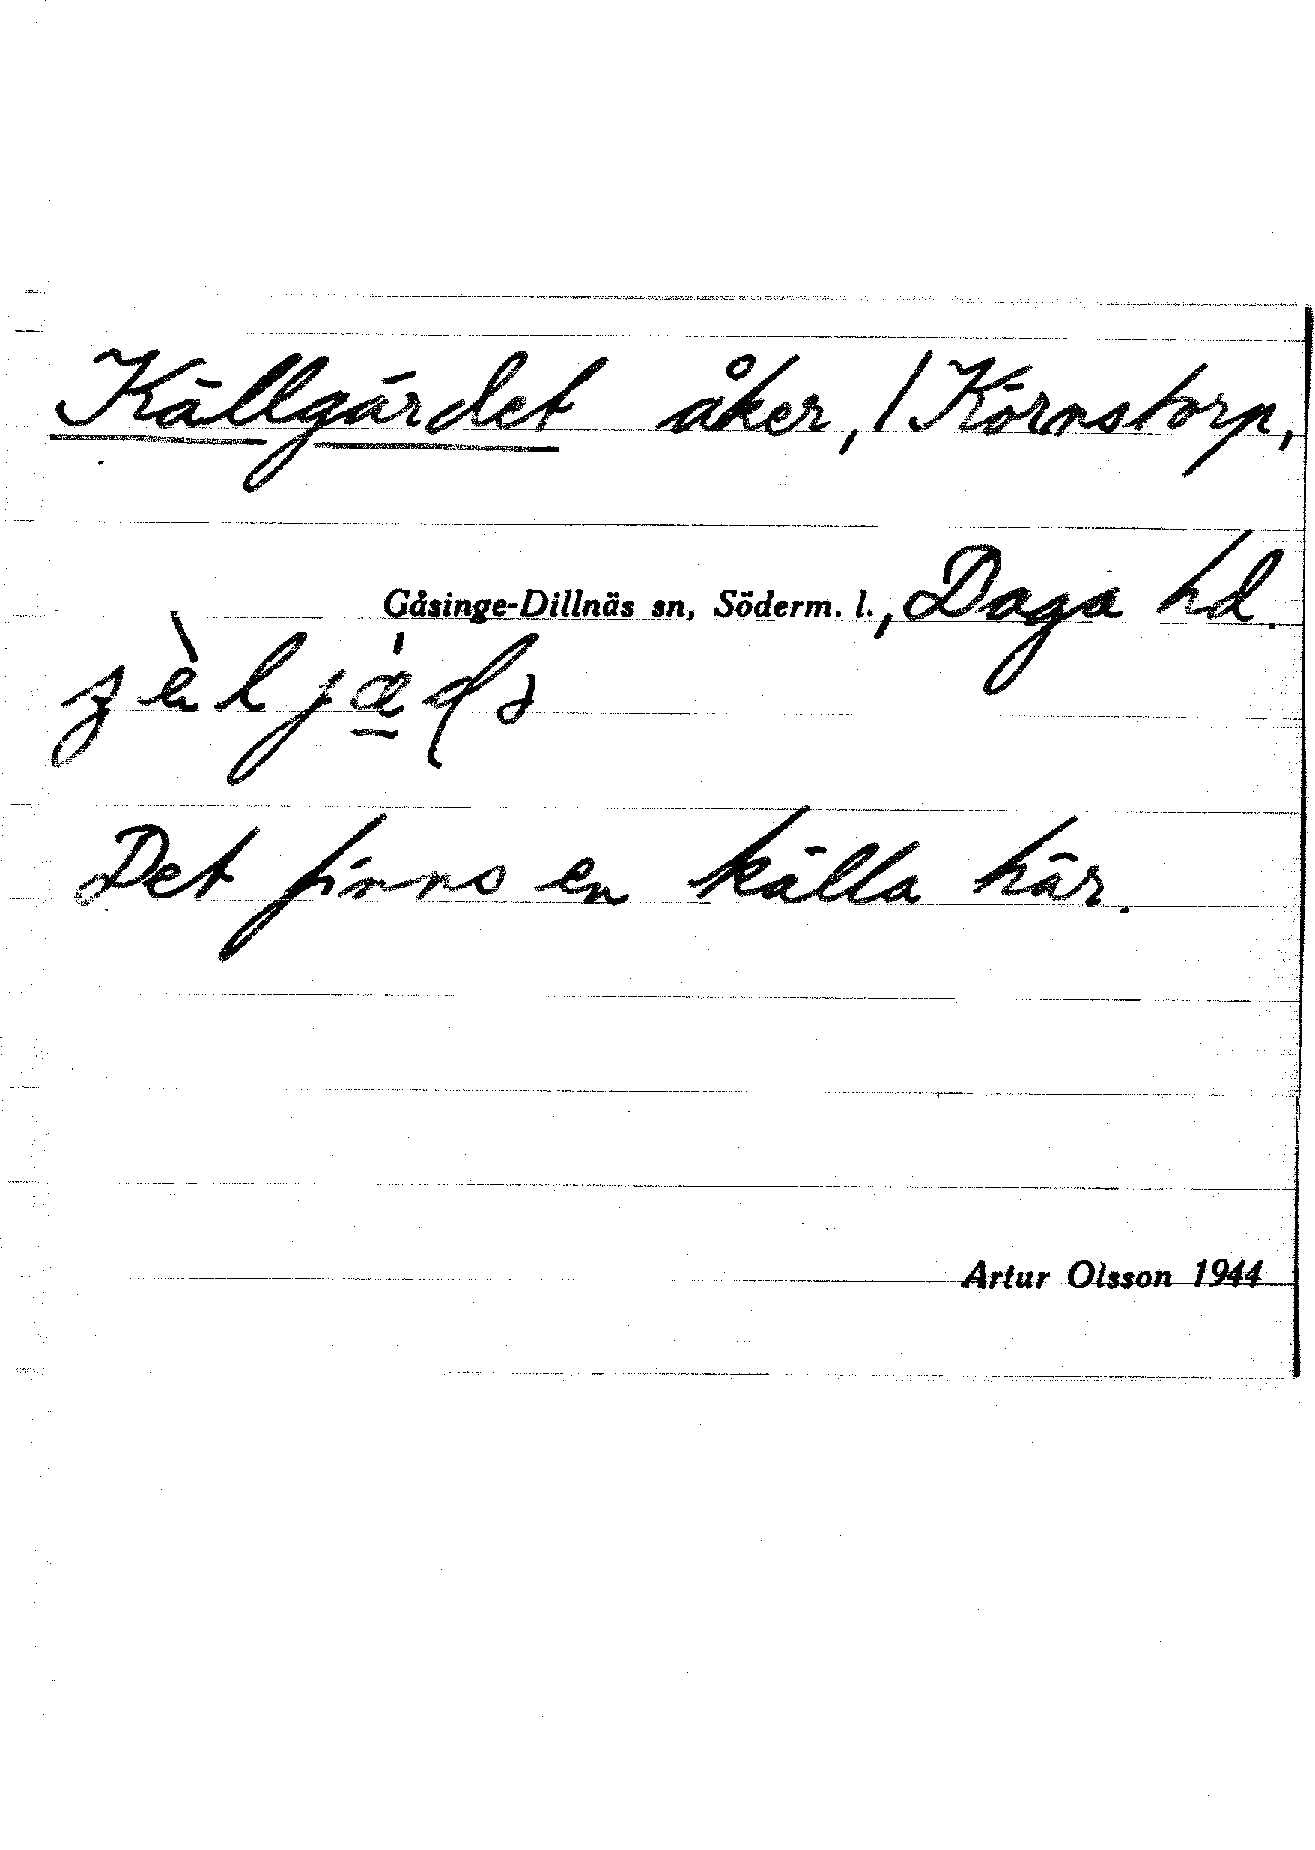 Källgärdet åker, / Körnstorp,
Gåsinge-Dillnäs sn, Söderm. l., Daga hd.
Det finns en källa här.
Artur Olsson 1944